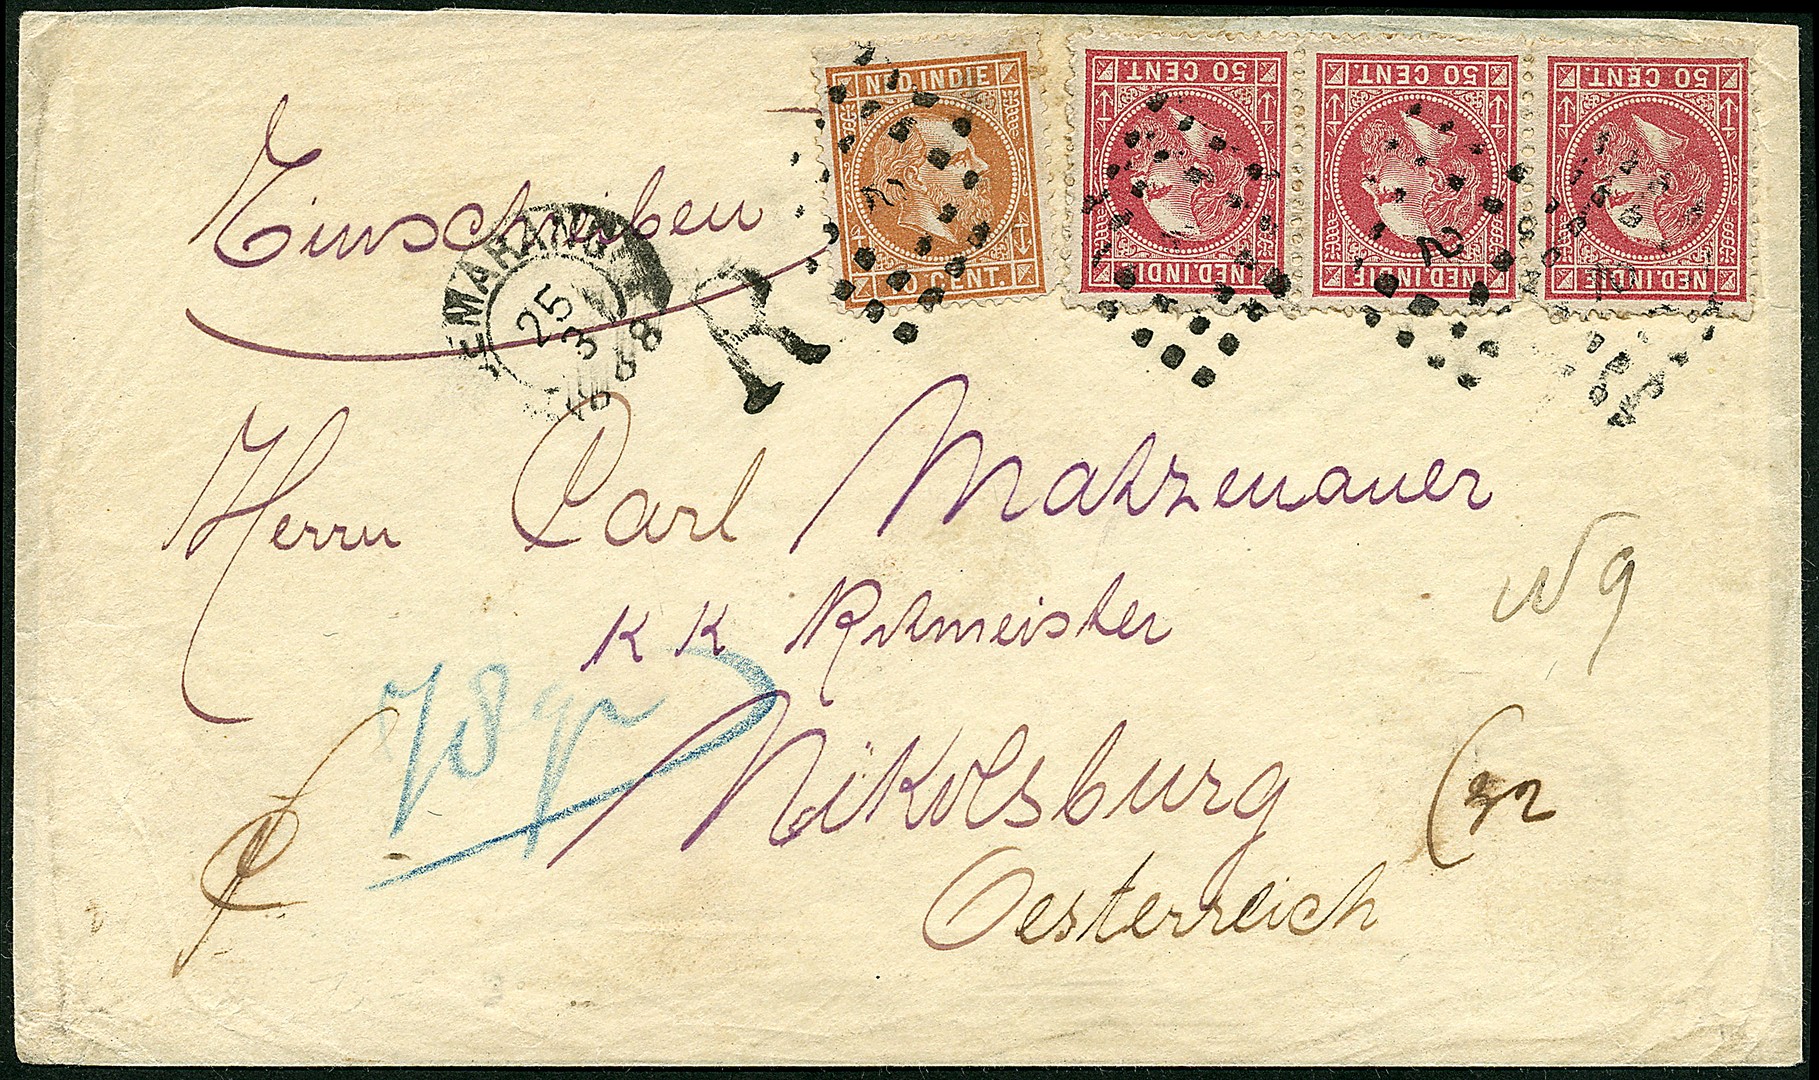 NED.INDIE
10 CENT.
50 CENT.
NED.INDIE
50 CENT.
NED.INDIE
50 CENT.
NED.INDIE
2
2
Einschreiben
SEMARANG
25
3
R
Herrn Carl Matzenauer
K K Rittmeister
78 gr
Nikolsburg
Oesterreich